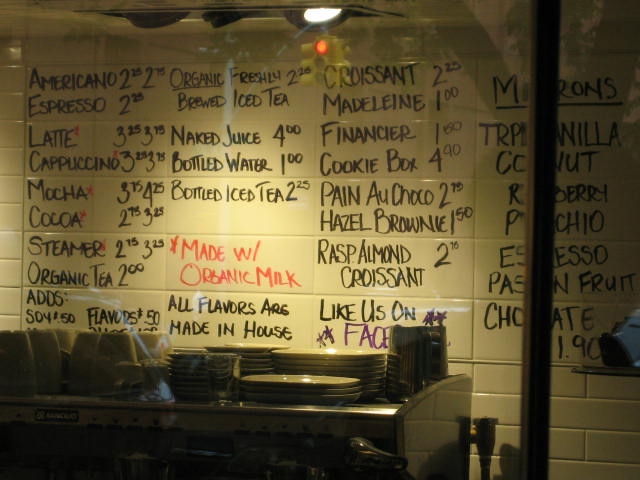 AMERICANO 2.25 2.75
ESPRESSO 2.25
LATTE* 3.25 3.75
CAPPUCCINO* 3.25 3.75
MOCHA* 3.75 4.25
COCOA* 2.75 3.25
STEAMER* 2.75 3.25
ORGANIC TEA 2.00
ADDS:
SOY $.50 FLAVORS $.50
ORGANIC FRESHLY 2.25
BREWED ICED TEA
NAKED JUICE 4.00
BOTTLED WATER 1.00
BOTTLED ICED TEA 2.25
*MADE W/
ORGANIC MILK
ALL FLAVORS ARE
MADE IN HOUSE
CROISSANT 2.25
MADELEINE 1.00
FINANCIER 1.50
COOKIE BOX 4.90
PAIN AU CHOCO 2.75
HAZEL BROWNIE 1.50
RASP ALMOND 2.75
CROISSANT
LIKE US ON **
** FACE
M RONS
TRPL ANILLA
CO NUT
R BERRY
P CHIO
ES ESSO
PAS N FRUIT
CHO ATE
1.90